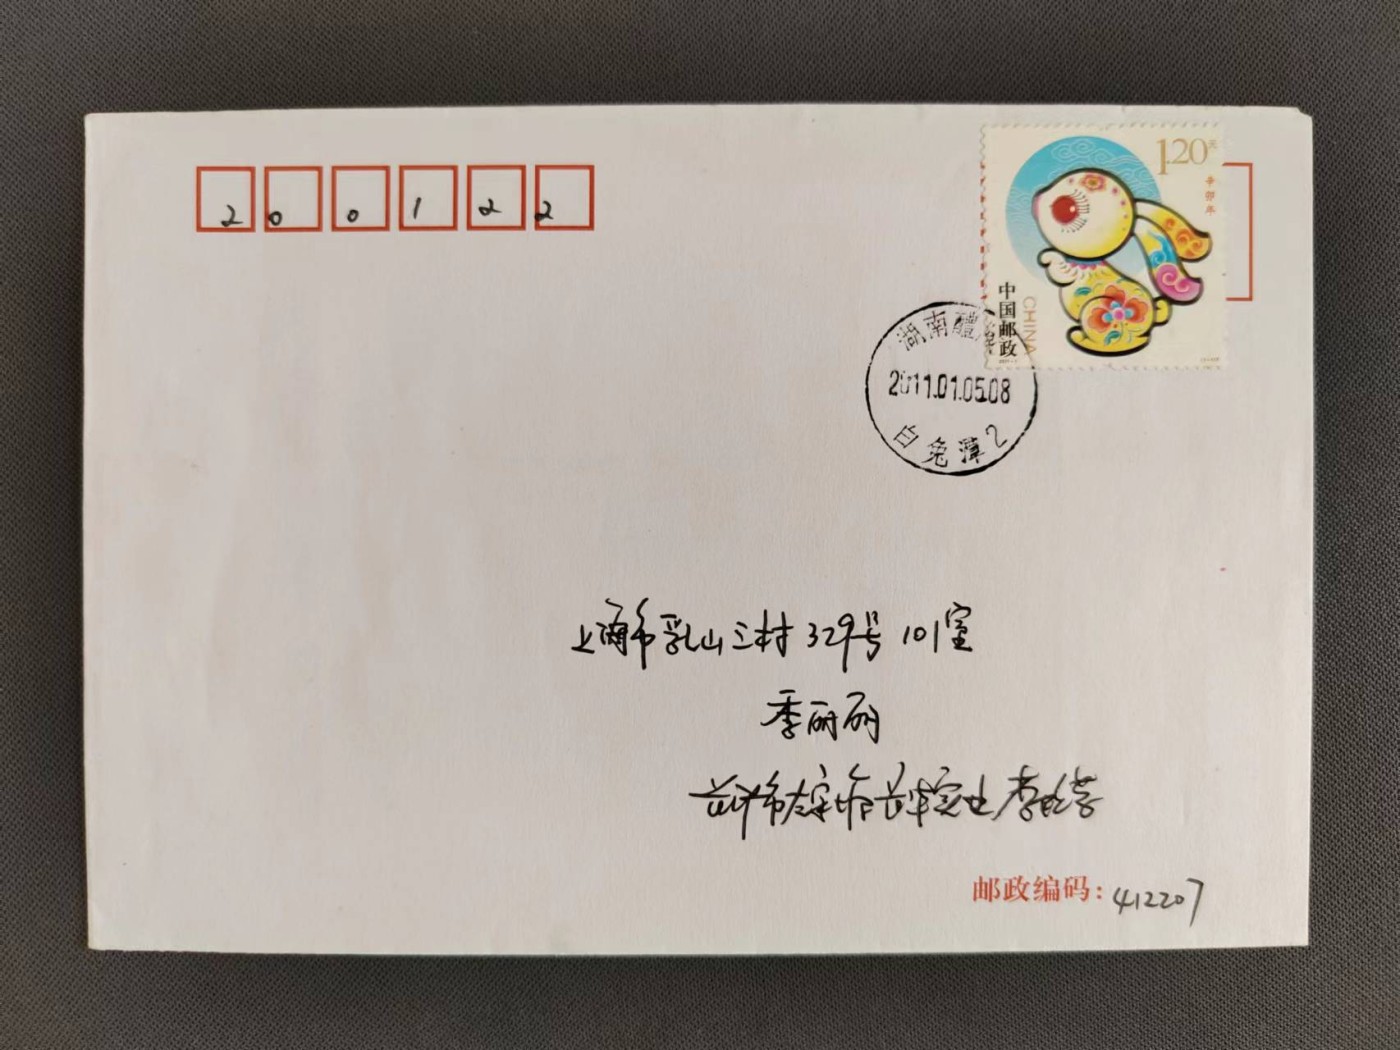 200122
1.20元
辛卯年
中国邮政
CHINA
湖南醴
2011.01.05.08
白兔潭2
上海市乳山三村329号101室
季丽丽
邮政编码：412207